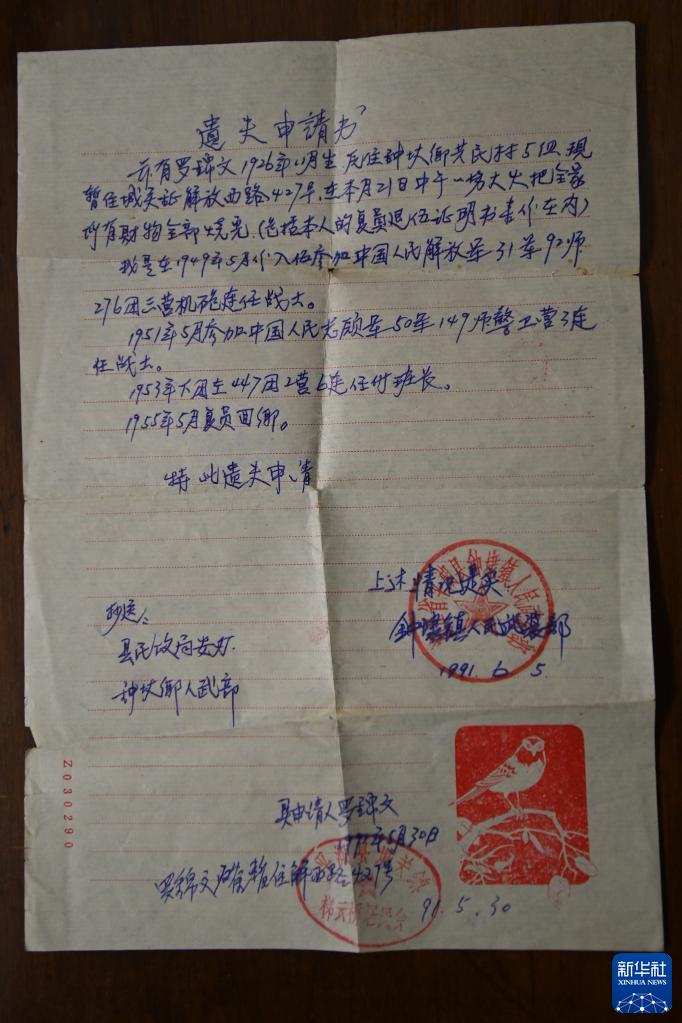 遗失申請书
兹有罗锦文1926年11月生,反住钟坎鄉共民村5组,现
暂住城关证解放西路427号,在本月21日中午一场大火把全家
所有财物全部烧光(包括本人的复员退伍证明书书件在内)
我是在1949年5月份入伍参加中国人民解放军31军92师
276团三营机砲连任战士。
1951年5月参加中国人民志願军50军149师警卫营3连
任战士。
1953年下团在447团2营6连任付班长。
1955年5月复员回鄉。
特此遗失申请
上述情况是实
钟埭镇人民武装部
1991.6.5.
抄送:
县民政局安办.
钟坎鄉人武部
Z030290
具申请人罗锦文
1991年5月30日
罗锦文确系暂住解西路427号
91.5.30
新华社
XINHUA NEWS